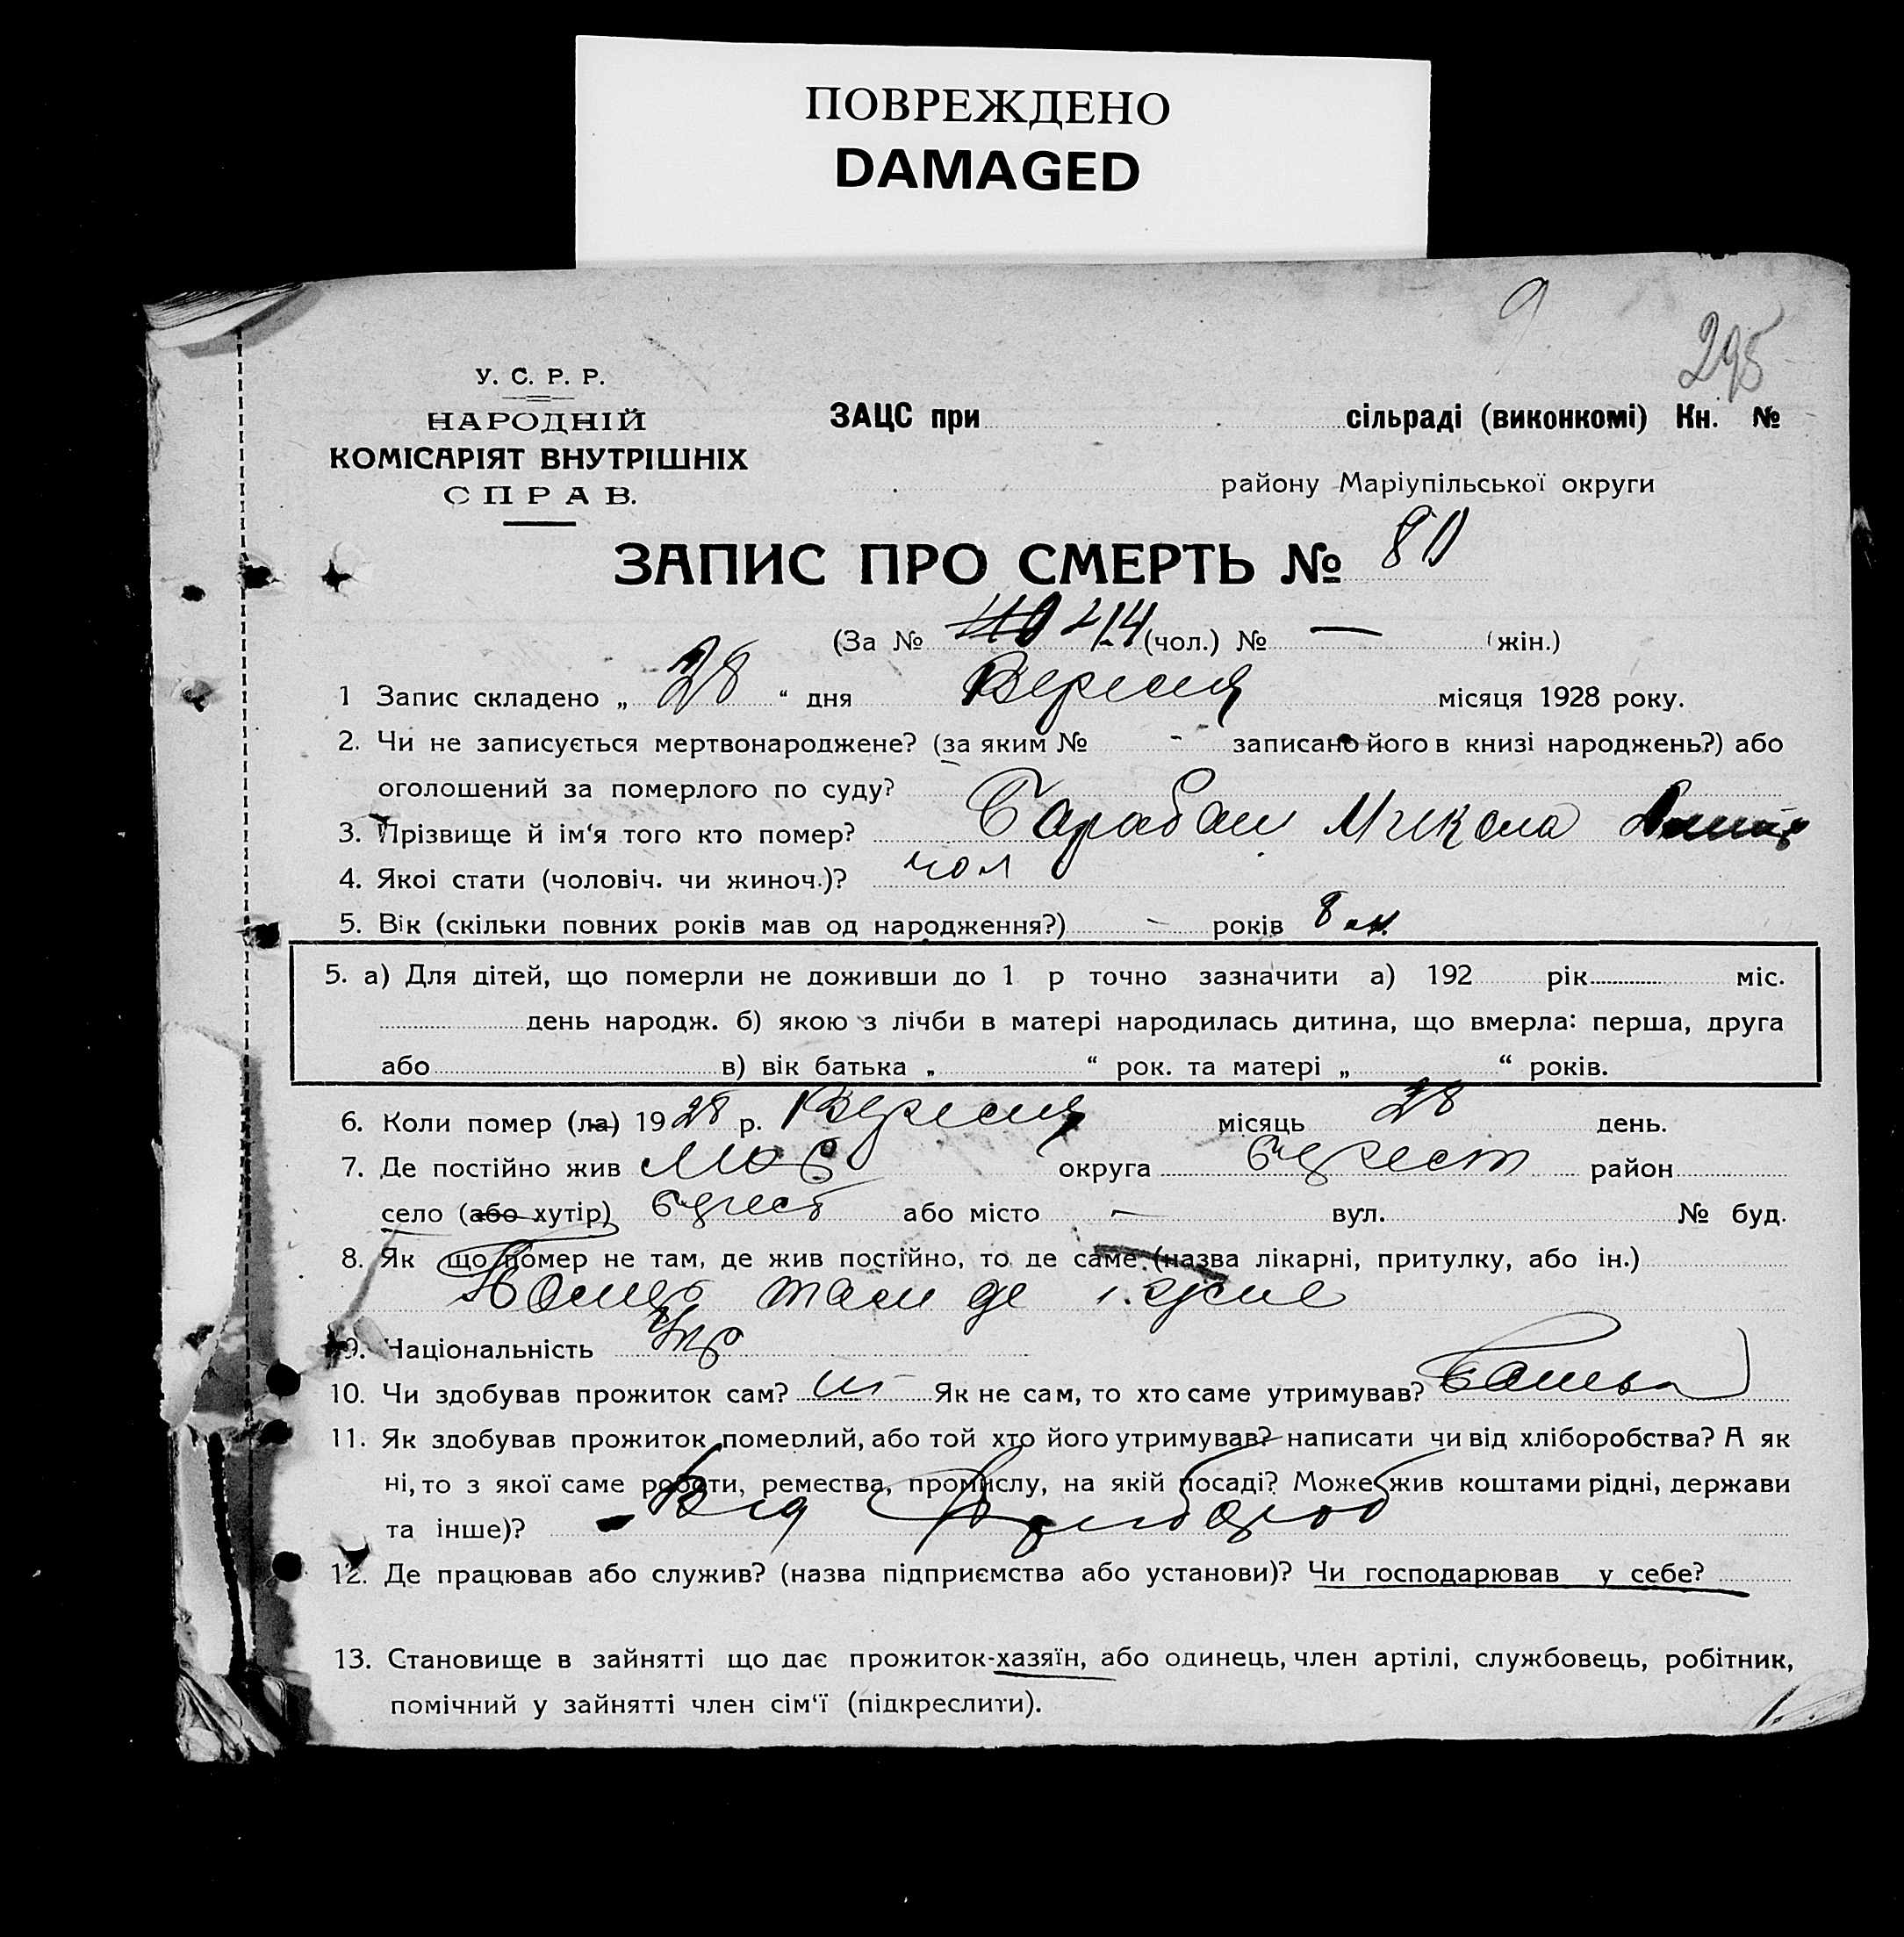 ПОВРЕЖДЕНО
DAMAGED
9
295
У. С. Р. Р.
НАРОДНІЙ
КОМІСАРІЯТ ВНУТРІШНІХ
СПРАВ.
ЗАЦС при сільраді (виконкомі) Кн. №
району Маріупільської округи
ЗАПИС ПРО СМЕРТЬ № 80
(За № 44 (чол.) № — (жін.)
1 Запис складено „ 28 “ дня Вересня місяця 1928 року.
2. Чи не записується мертвонароджене? (за яким № - записано його в книзі народжень?) або
оголошений за померлого по суду?
3. Прізвище й ім‘я того кто помер? Барабаш Микола
4. Якоі стати (чоловіч. чи жиноч.)? чол
5. Вік (скільки повних років мав од народження?) - років 8 м.
5. а) Для дітей, що померли не доживши до 1 р точно зазначити а) 192 рік міс.
день народж. б) якою з лічби в матері народилась дитина, що вмерла: перша, друга
або в) вік батька „ “ рок. та матері „ “ років.
6. Коли помер (ла) 1928 р. Вересня місяць 28 день.
7. Де постійно жив Мар округа район
село (або хутір) або місто — вул. № буд.
8. Як що помер не там, де жив постійно, то де саме (назва лікарні, притулку, або ін.)
Помер там де
9. Національність Укр
10. Чи здобував прожиток сам? ні Як не сам, то хто саме утримував? Батько
11. Як здобував прожиток померлий, або той хто його утримував? написати чи від хліборобства? А як
ні, то з якої саме роботи, ремества, промислу, на якій посаді? Може жив коштами рідні, держави
та інше)? Від хлібороб
12. Де працював або служив? (назва підприємства або установи)? Чи господарював у себе?
13. Становище в зайнятті що дає прожиток-хазяїн, або одинець, член артілі, службовець, робітник,
помічний у зайнятті член сім‘ї (підкреслити).